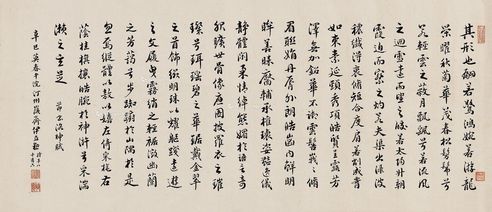 其形也翩若驚鴻婉若游龍
榮曜秋菊華茂春松髣髴兮
若輕雲之蔽月飄飄兮若流風
之迴雪遠而望之皎若太陽升朝
霞迫而察之灼若芙蕖出淥波
穠纖得衷脩短合度肩若削成𦝫
如束素延頸秀項皓質呈露芳
澤無加鉛華不御雲髻峩峩脩
眉聯娟丹脣外朗皓齒內鮮明
眸善睞靨輔承權瓌姿豔逸儀
靜體閑柔情綽態媚於語言奇
服曠世骨像應圖披羅衣之璀
璨兮珥瑤碧之華琚戴金翠
之首飾綴明珠以耀軀踐遠遊
之文履曳霧綃之輕裾微幽蘭
之芳藹兮步踟躕於山隅於是
忽焉縱體以遨以嬉左倚采旄右
蔭桂旗攘皓腕於神滸兮采湍
瀨之玄芝 節書洛神賦
辛巳春汀州齋伊立勳